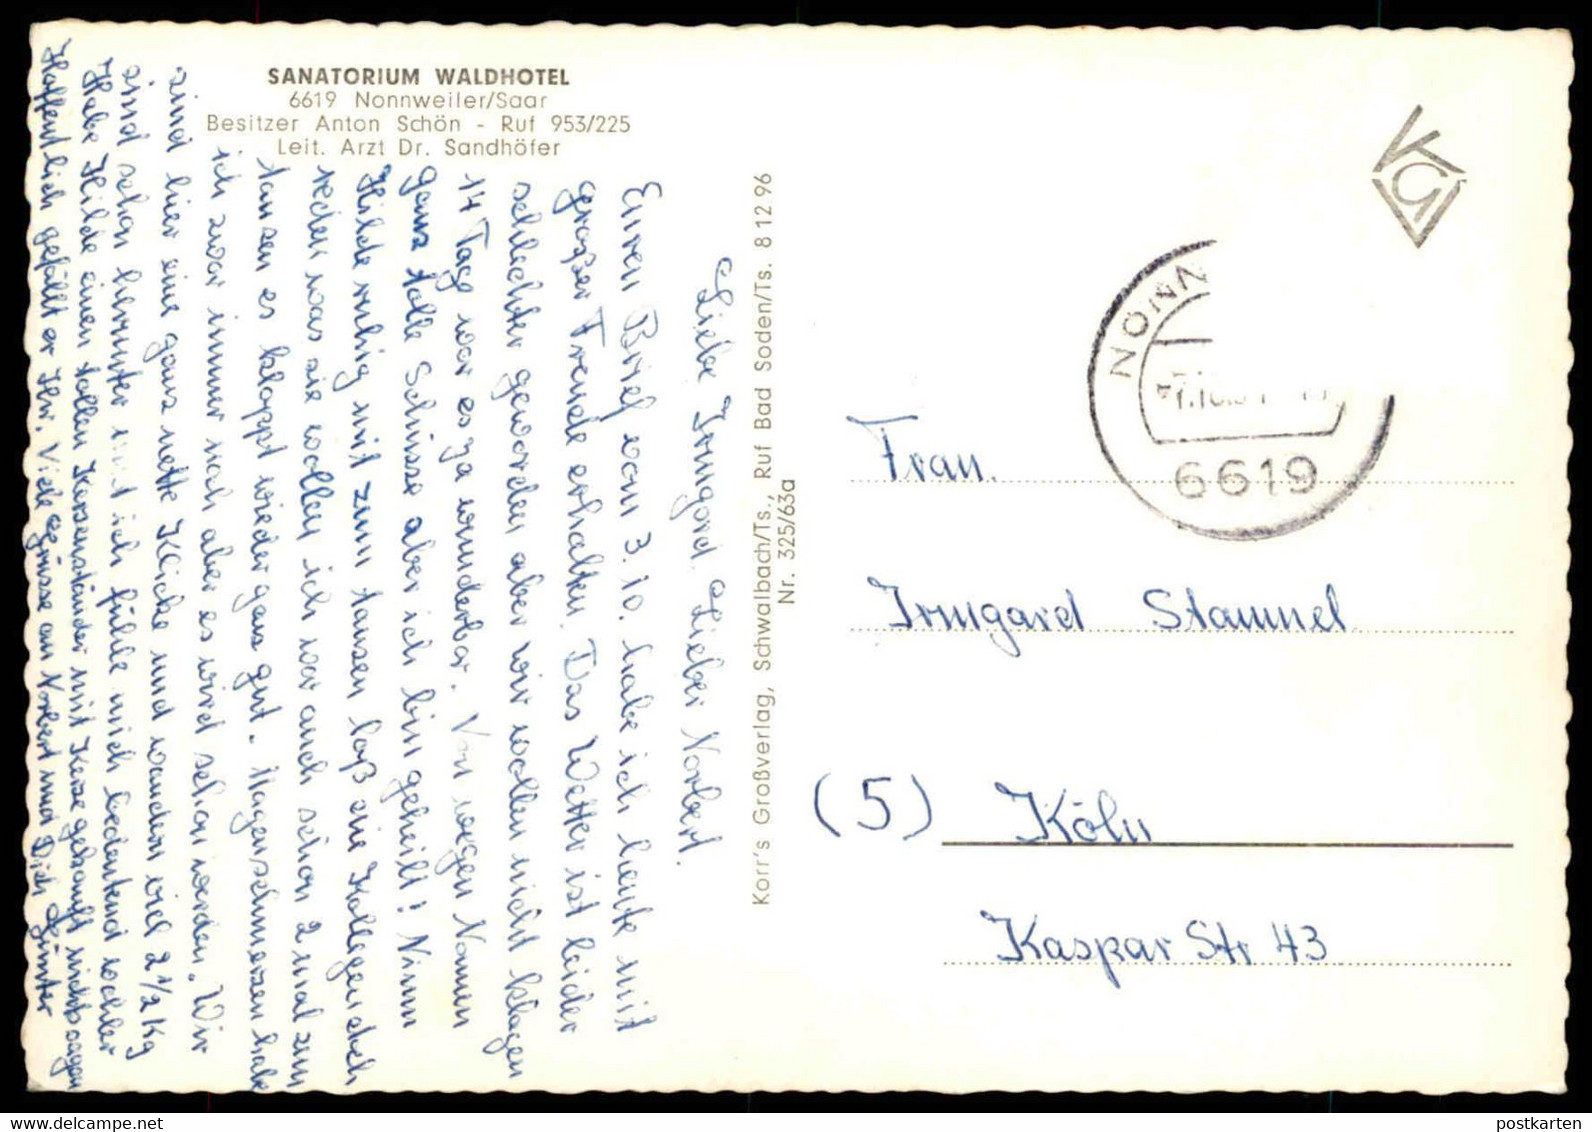 SANATORIUM WALDHOTEL
6619 Nonnweiler/Saar
Besitzer Anton Schön - Ruf 953/225
Leit. Arzt Dr. Sandhöfer
Liebe Irmgard. Lieber Norbert.
Euren Brief vom 3.10. habe ich heute mit
großer Freude erhalten. Das Wetter ist leider
schlichter geworden aber wir wollen nicht klagen
14 Tag war es ja wunderbar. Von wegen Nonnen
ganz tolle Schüsse aber ich bin geheilt! Nimm
Hilde ruhig mit zum tansen laß die Kollegen doch
reden was sie wollen ich war auch schon 2 mal zum
tansen es klappt wieder ganz gut. Magenschmerzen habe
ich zwar immer noch aber es wird schon werden. Wir
sind hier eine ganz nette Klicke und wandern viel 2 1/2 Kg
sind schon herunter und ich fühle mich bedeutend wohler
Habe Hilde einen tollen Kerzenständer mit Kerze gekauft nicht sagen
Hoffentlich gefällt er Ihr. Viele Grüsse an Norbert und Dich Günter
Korr's Großverlag, Schwalbach/Ts., Ruf Bad Soden/Ts. 8 12 96
Nr. 325/63a
KGV
NONN
6619
Frau.
Irmgard Stammel
(5) Köln
Kaspar Str 43
postkarten